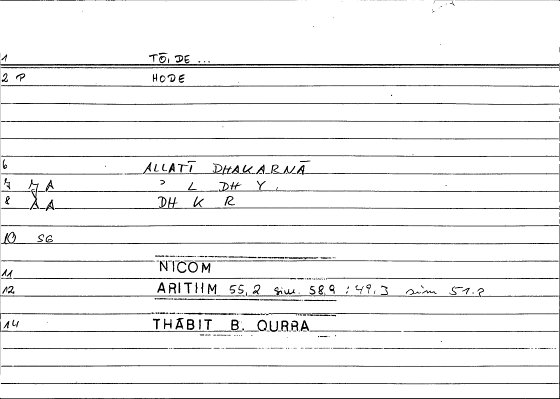 1 TŌI, DE ...
2 P HODE
6 ALLATĪ DHAKARNĀ
7 A ʾ L DH Y .
8 A DH K R
10 SG
11 NICOM
12 ARITHM 55,2 sim. 58,9 ; 49,3 sim 51.
14 THĀBIT B. QURRA